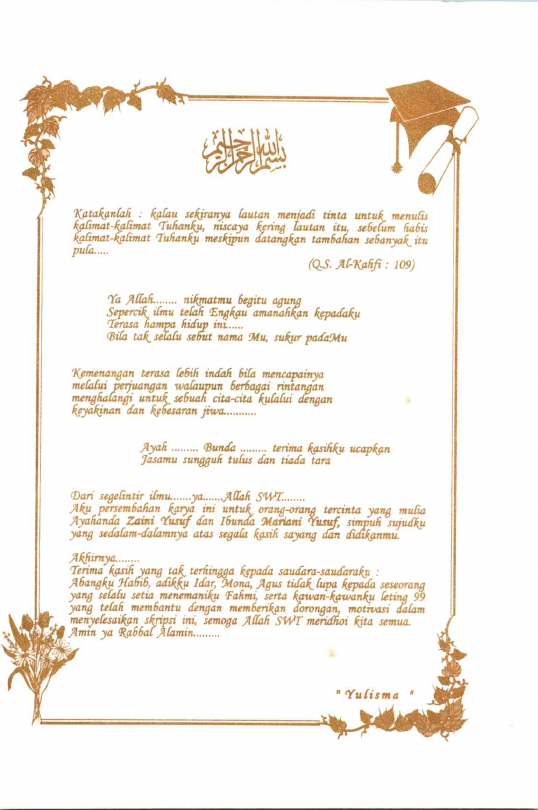 بسم الله الرحمن الرحيم
Katakanlah : kalau sekiranya lautan menjadi tinta untuk menulis
kalimat-kalimat Tuhanku, niscaya kering lautan itu, sebelum habis
kalimat-kalimat Tuhanku meskipun datangkan tambahan sebanyak itu
pula.....
(Q.S. Al-Kahfi : 109)
Ya Allah........ nikmatmu begitu agung
Sepercik ilmu telah Engkau amanahkan kepadaku
Terasa hampa hidup ini......
Bila tak selalu sebut nama Mu, sukur padaMu
Kemenangan terasa lebih indah bila mencapainya
melalui perjuangan walaupun berbagai rintangan
menghalangi untuk sebuah cita-cita kulalui dengan
keyakinan dan kebesaran jiwa...........
Ayah ......... Bunda ......... terima kasihku ucapkan
Jasamu sungguh tulus dan tiada tara
Dari segelintir ilmu.......ya.......Allah SWT........
Aku persembahan karya ini untuk orang-orang tercinta yang mulia
Ayahanda Zaini Yusuf dan Ibunda Mariani Yusuf, simpuh sujudku
yang sedalam-dalamnya atas segala kasih sayang dan didikanmu.
Akhirnya........
Terima kasih yang tak terhingga kepada saudara-saudaraku :
Abangku Habib, adikku Idar, Mona, Agus tidak lupa kepada seseorang
yang selalu setia menemaniku Fahmi, serta kawan-kawanku leting 99
yang telah membantu dengan memberikan dorongan, motivasi dalam
menyelesaikan skripsi ini, semoga Allah SWT meridhoi kita semua.
Amin ya Rabbal Alamin.........
" Yulisma "